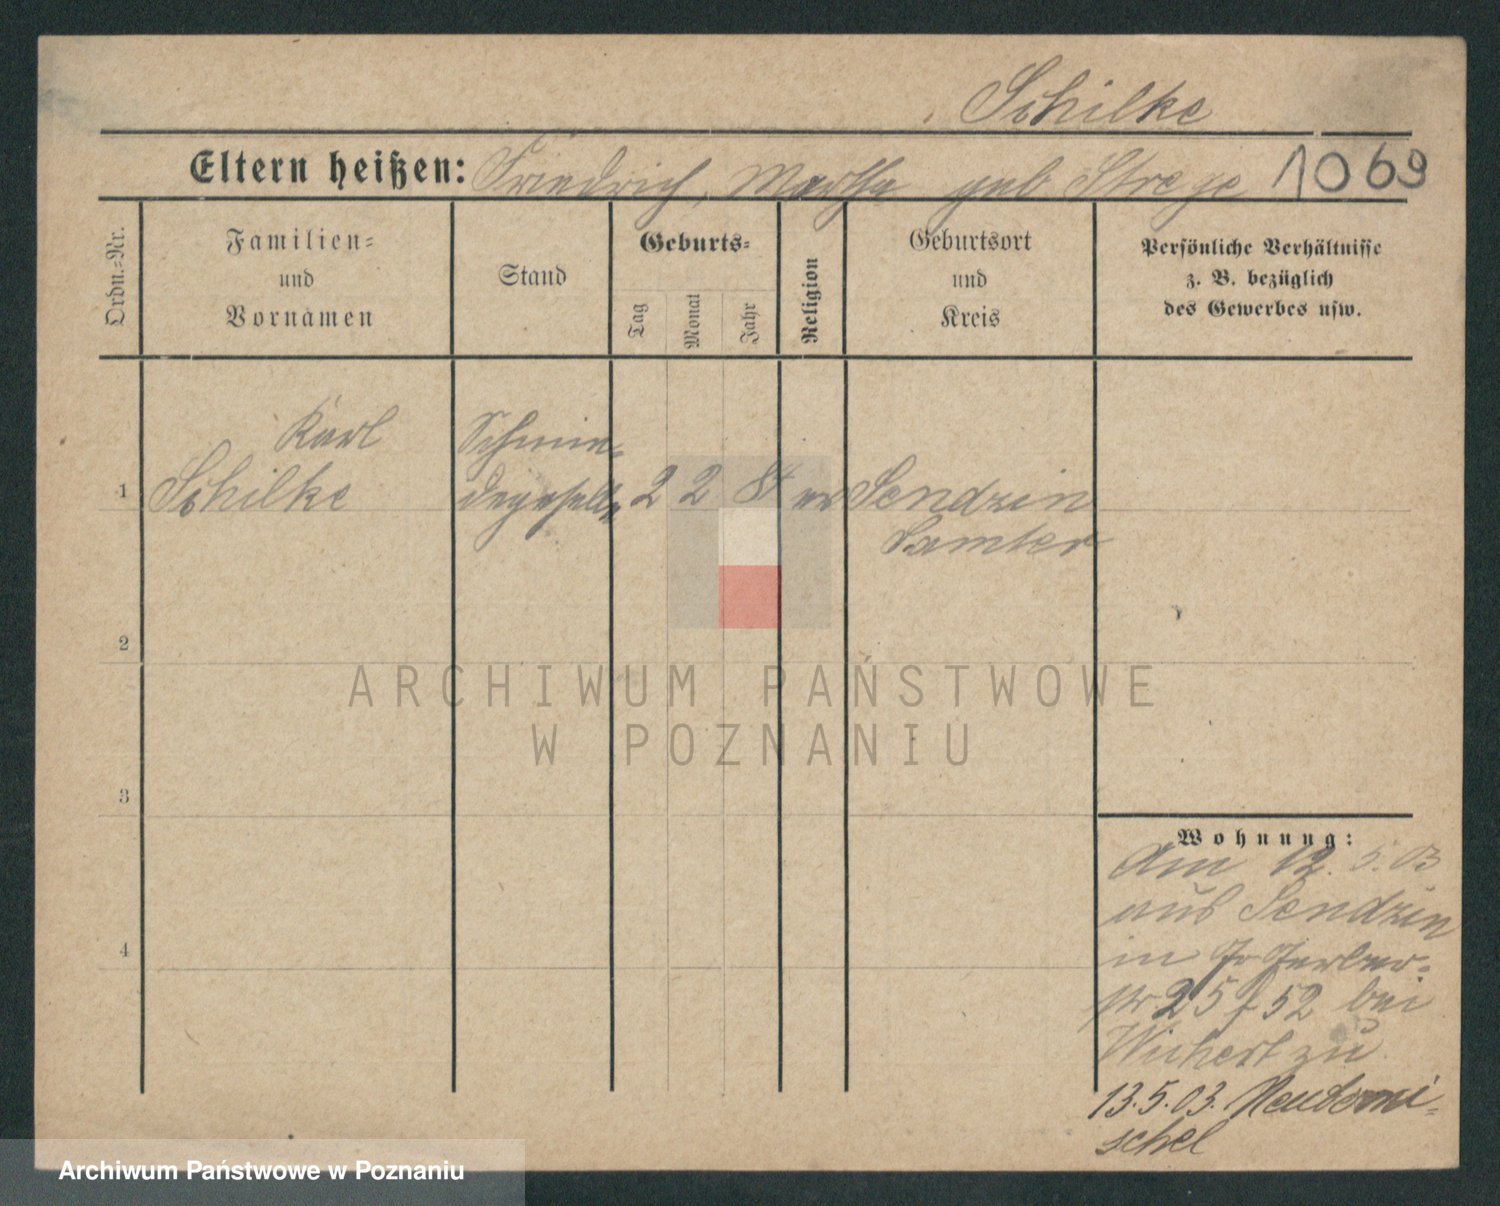 Schilke
Eltern heißen: Friedrich, Martha geb Strege 1069
Ordn.=Nr.
Familien=
und
Vornamen
Stand
Geburts=
Tag
Monat
Jahr
Religion
Geburtsort
und
Kreis
Persönliche Verhältnisse
z. B. bezüglich
des Gewerbes usw.
Karl Schmie=
1 Schilke degeselle 2 2 84 ev Sendzin
Samter
2
3
4
Wohnung:
Am 12. 5. 03
aus Sendzin
in Gerber=
str 25 52 bei
Wichert zu
13.5.03. Neutomi=
schel
ARCHIWUM PAŃSTWOWE
W POZNANIU
Archiwum Państwowe w Poznaniu